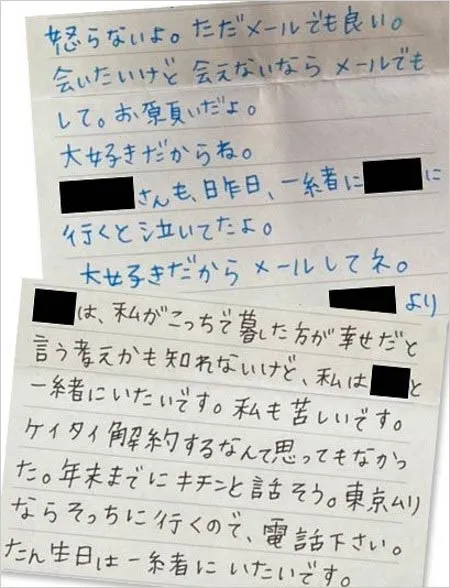 怒らないよ。ただメールでも良い。
会いたいけど会えないならメールでも
して。お願いだよ。
大好きだからね。
さんも、日昨日、一緒者に に
行くと泣いてたよ。
大好きだからメールしてネ。
より
は、私がこっちで暮した方が幸せだと
言う考えかも知れないけど、私は と
一緒にいたいです。私も苦しいです。
ケイタイ解約するなんて思ってもなかっ
た。年末までにキチンと話そう。東京ムリ
ならそっちに行くので、電話下さい。
たん生日は一緒にいたいです。